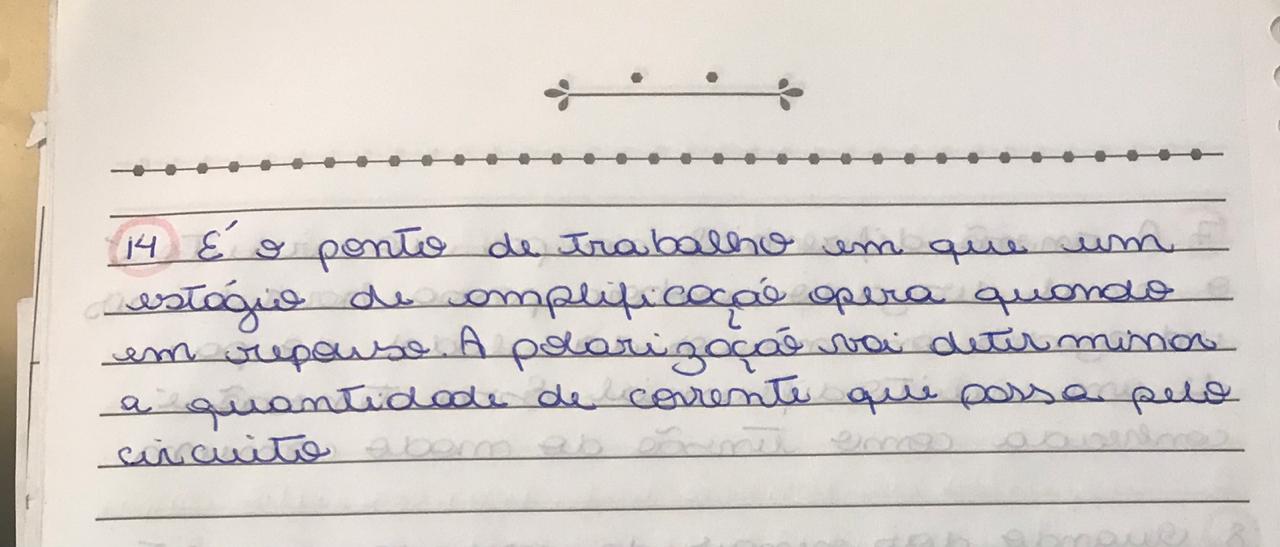 14 É o ponto de trabalho em que um
estágio de amplificação opera quando
em repouso. A polarização vai determinar
a quantidade de corrente que passa pelo
circuito